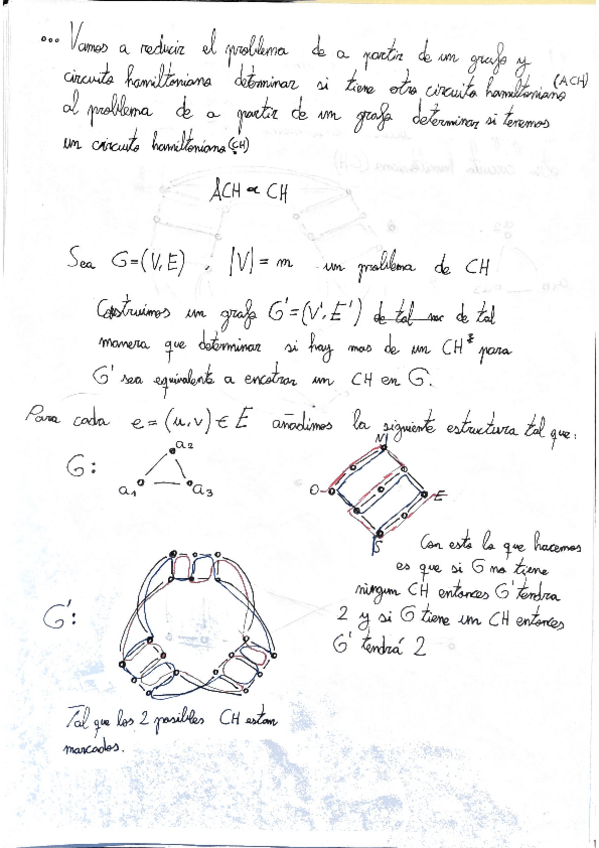 ... Vamos a reducir el problema de a partir de un grafo y
circuito hamiltoniano determinar si tiene otro circuito hamiltoniano (ACH)
al problema de a partir de un grafo determinar si tenemos
un circuito hamiltoniano (CH)
ACH ∝ CH
Sea G=(V,E) , |V| = m un problema de CH
Construimos un grafo G'=(V',E') de tal de tal
manera que determinar si hay mas de un CH para
G' sea equivalente a encotrar un CH en G.
Para cada e = (u,v) ∈ E añadimos la siguiente estructura tal que:
G:
a2
a1
a3
N
O
E
S
Con esto lo que hacemos
es que si G no tiene
ningun CH entonces G' tendra
2 y si G tiene un CH entonces
G' tendrá 2
G':
Tal que los 2 posibles CH estan
marcados.